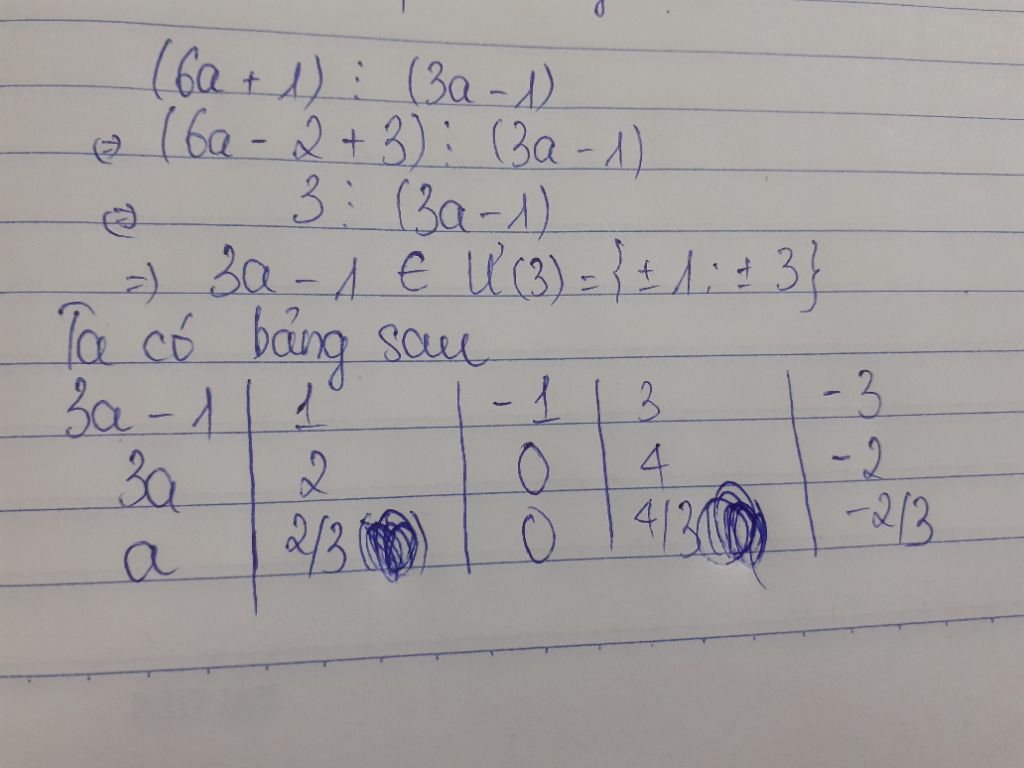 (6a + 1) ⋮ (3a - 1)
⇔ (6a - 2 + 3) ⋮ (3a - 1)
⇔ 3 ⋮ (3a - 1)
=> 3a - 1 ∈ Ư(3) = {±1; ±3}
Ta có bảng sau
3a - 1 | 1 | -1 | 3 | -3
3a | 2 | 0 | 4 | -2
a | 2/3 | 0 | 4/3 | -2/3